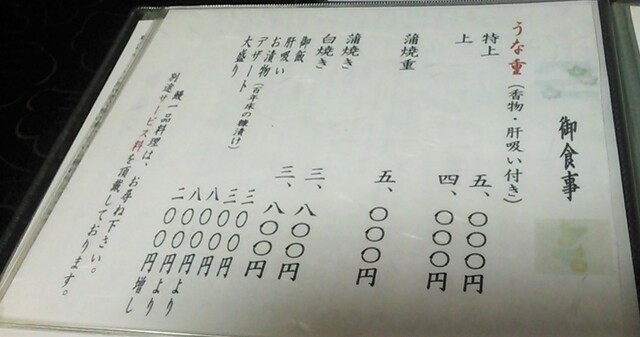 御食事
うな重（香物・肝吸い付き）
特上 五、〇〇〇円
上 四、〇〇〇円
蒲焼重 五、〇〇〇円
蒲焼き 三、八〇〇円
白焼き 三、八〇〇円
御飯 三〇〇円
肝吸い 三〇〇円
お漬物（百年床の糠漬け） 八〇〇円
デザート 八〇〇円より
大盛り 二〇〇円増し
鰻一品料理は、お尋ね下さい。
別途サービス料を頂戴しております。